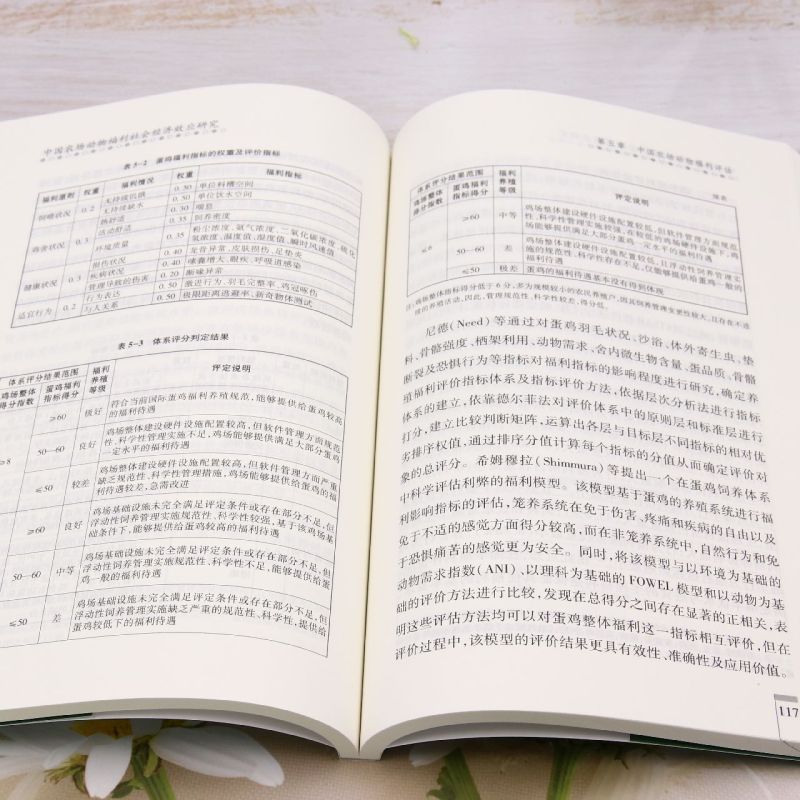 中国农场动物福利社会经济效应研究
表 5-2 蛋鸡福利指标的权重及评价指标
福利原则 权重 福利情况 权重 福利指标
饲喂状况 0.2 无持续饥饿 0.50 单位料槽空间
无持续缺水 0.50 单位饮水空间
鸡舍状况 0.3 热舒适 0.30 喘息
活动舒适 0.35 饲养密度
环境质量 0.35 粉尘浓度、氨气浓度、二氧化碳浓度、硫化
氢浓度、温度值、湿度值、瞬时风速值
健康状况 0.3 损伤状况 0.40 龙骨异常、皮肤损伤、足垫炎
疾病状况 0.40 嗉囊增大、眼疾、呼吸道感染
管理导致的伤害 0.20 断喙异常
适宜行为 0.2 行为表达 0.50 激进行为、羽毛完整率、鸡冠啄伤
与人关系 0.50 极限距离逃避率、新奇物体测试
表 5-3 体系评分判定结果
体系评分结果范围 福利养殖等级 评定说明
鸡场整体得分指数 蛋鸡福利指标得分
≥8 ≥60 极好 符合当前国际蛋鸡福利养殖规范,能够提供给蛋鸡较高
的福利待遇
50—60 良好 鸡场整体建设硬件设施配置较高,但软件管理方面规范
性、科学性管理实施不足,鸡场能够提供满足大部分蛋鸡
一定水平的福利待遇
≤50 较差 鸡场整体建设硬件设施配置较高,但软件管理方面严重
缺乏规范性、科学性管理措施,鸡场能够提供给蛋鸡的福
利待遇较差,急需改进
≥60 良好 鸡场基础设施未完全满足评定条件或存在部分不足,但
浮动性饲养管理实施规范性、科学性较强,基于该鸡场基
础条件下,能够提供给蛋鸡较高的福利待遇
50—60 中等 鸡场基础设施未完全满足评定条件或存在部分不足,但
浮动性饲养管理实施规范性、科学性不足,能够提供给蛋
鸡一般的福利待遇
≤50 差 鸡场基础设施未完全满足评定条件或存在部分不足,但
浮动性饲养管理实施缺乏严重的规范性、科学性,提供给
蛋鸡较低下的福利待遇
第五章 中国农场动物福利评估
续表
体系评分结果范围 福利养殖等级 评定说明
鸡场整体得分指数 蛋鸡福利指标得分
≤6 ≥60 中等 鸡场整体建设硬件设施配置较低,但软件管理方面规范
性、科学性管理实施较强,在较低的鸡场硬件设施下,鸡
场能够提供满足大部分蛋鸡一定水平的福利待遇
50—60 差 鸡场整体建设硬件设施配置较低,且浮动性饲养管理实
施的规范性、科学性存在不足,仅能够提供给蛋鸡一般的
福利待遇
≤50 极差 蛋鸡的福利待遇基本没有得到体现
注:鸡场整体指标得分低于 6 分,多为规模较小的农民养殖户,因其饲养管理变更性较大,且存在不连
续的养殖活动,因此,管理规范性、科学性较差,得分较低。
尼德(Need)等通过对蛋鸡羽毛状况、沙浴、体外寄生虫、垫
料、骨骼强度、栖架利用、动物需求、舍内微生物含量、蛋品质、骨骼
断裂及恐惧行为等指标对福利指标的影响程度进行研究,确定养
殖福利评价指标体系及指标评价方法,依据层次分析法进行指标
体系的建立,依靠德尔菲法对评价体系中的原则层和标准层进行
打分,建立比较判断矩阵,运算出各层与目标层不同指标的相对优
劣排序权值,通过排序分值计算每个指标的分值从而确定评价对
象的总评分。希姆穆拉(Shimmura)等提出一个在蛋鸡饲养体系
中科学评估利弊的福利模型。该模型基于蛋鸡的养殖系统进行福
利影响指标的评估,笼养系统在免于伤害、疼痛和疾病的自由以及
免于不适的感觉方面得分较高,而在非笼养系统中,自然行为和免
于恐惧痛苦的感觉更为安全。同时,将该模型与以环境为基础的
动物需求指数(ANI)、以理科为基础的 FOWEL 模型和以动物为基
础的评价方法进行比较,发现在总得分之间存在显著的正相关,表
明这些评估方法均可以对蛋鸡整体福利这一指标相互评价,但在
评价过程中,该模型的评价结果更具有效性、准确性及应用价值。
117